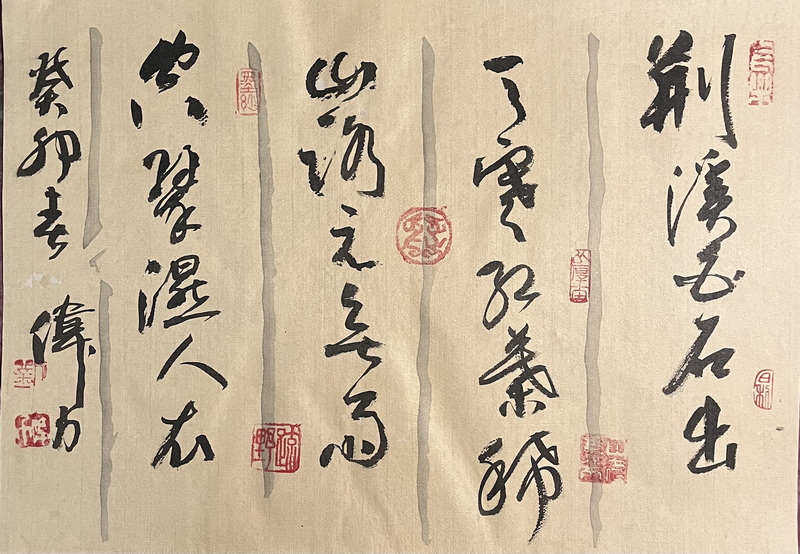 荆溪白石出
天寒红叶稀
山路元無雨
空翠濕人衣
癸卯春
偉力